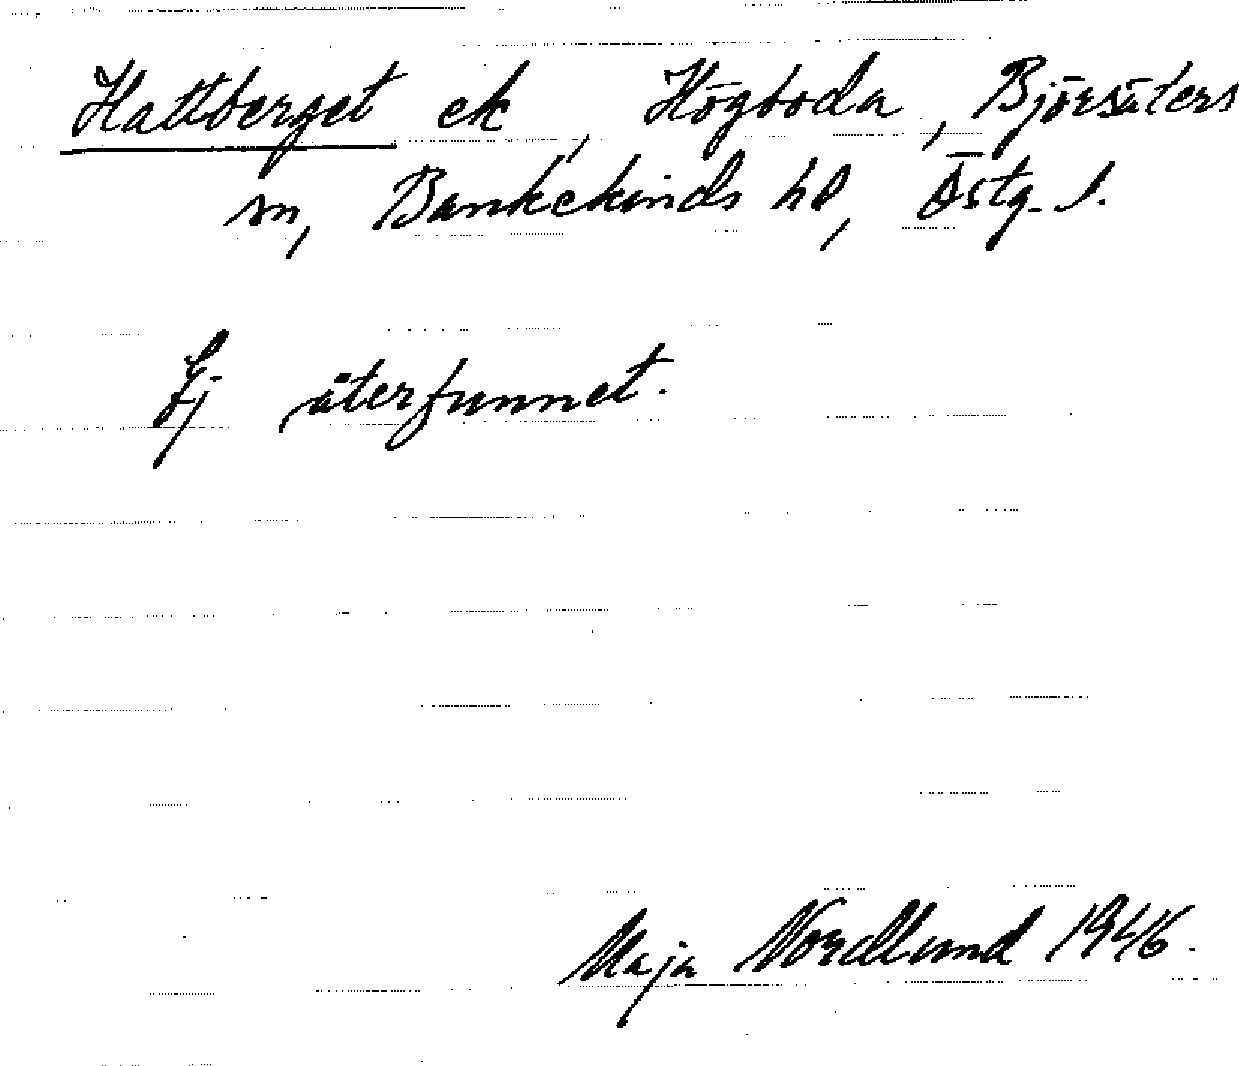 Hattberget ek, Högboda, Björsäters
sn, Bankekinds hd, Östg. l.
Ej återfunnet.
Maja Nordlund 1946.